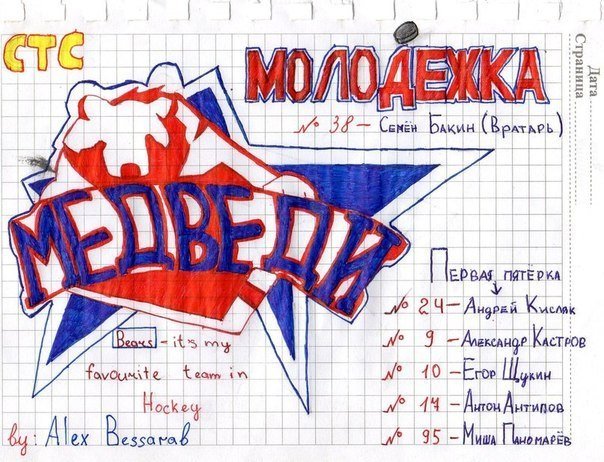 СТС
МОЛОДЕЖКА
№ 38 – Семён Бакин (Вратарь)
МЕДВЕДИ
Первая пятёрка
№ 24 – Андрей Кисляк
№ 9 – Александр Кастров
№ 10 – Егор Щукин
№ 14 – Антон Антипов
№ 95 – Миша Паномарёв
Bears – it's my
favourite team in
Hockey
by: Alex Bessarab
Дата
Страница